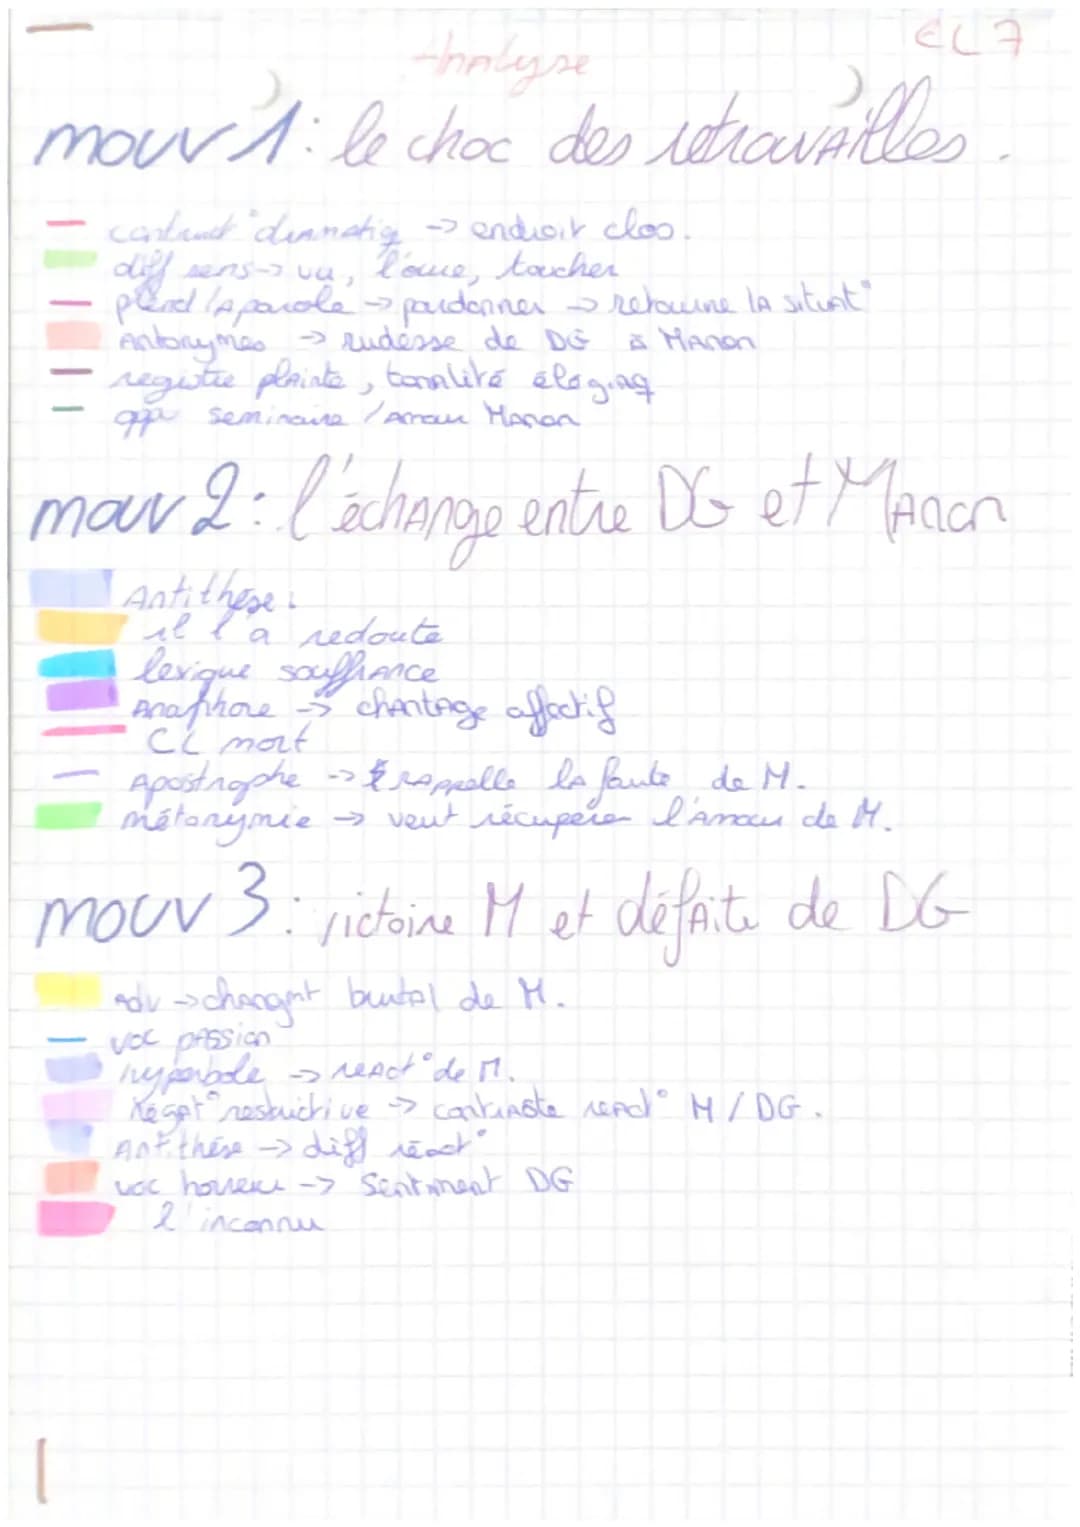 Analyse
EL 7
mouv 1 : le choc des retrouvailles.
dramatiq -> endroit clos.
diff sens -> vu, l'ouïe, toucher
prend la parole -> pardonner -> retourne la situat°
Antonymes -> rudesse de DG à Manon
registre plainte, tonalité élégiaq
opp° seminaire / Amour Manon
mouv 2 : l'échange entre DG et Manon
Antithèse :
il l'a redoute
lexique souffrance
Anaphore -> chantage affectif
CL mort
Apostrophe -> rappelle la faute de M.
métonymie -> veut récupérer l'Amour de M.
mouv 3 : victoire M et défaite de DG
Adv -> changmt brutal de M.
voc passion
hyperbole -> react° de M.
Négat° restrictive -> contraste react° M / DG.
Antithèse -> diff réact°
voc horreur -> Sentiment DG
l'inconnu